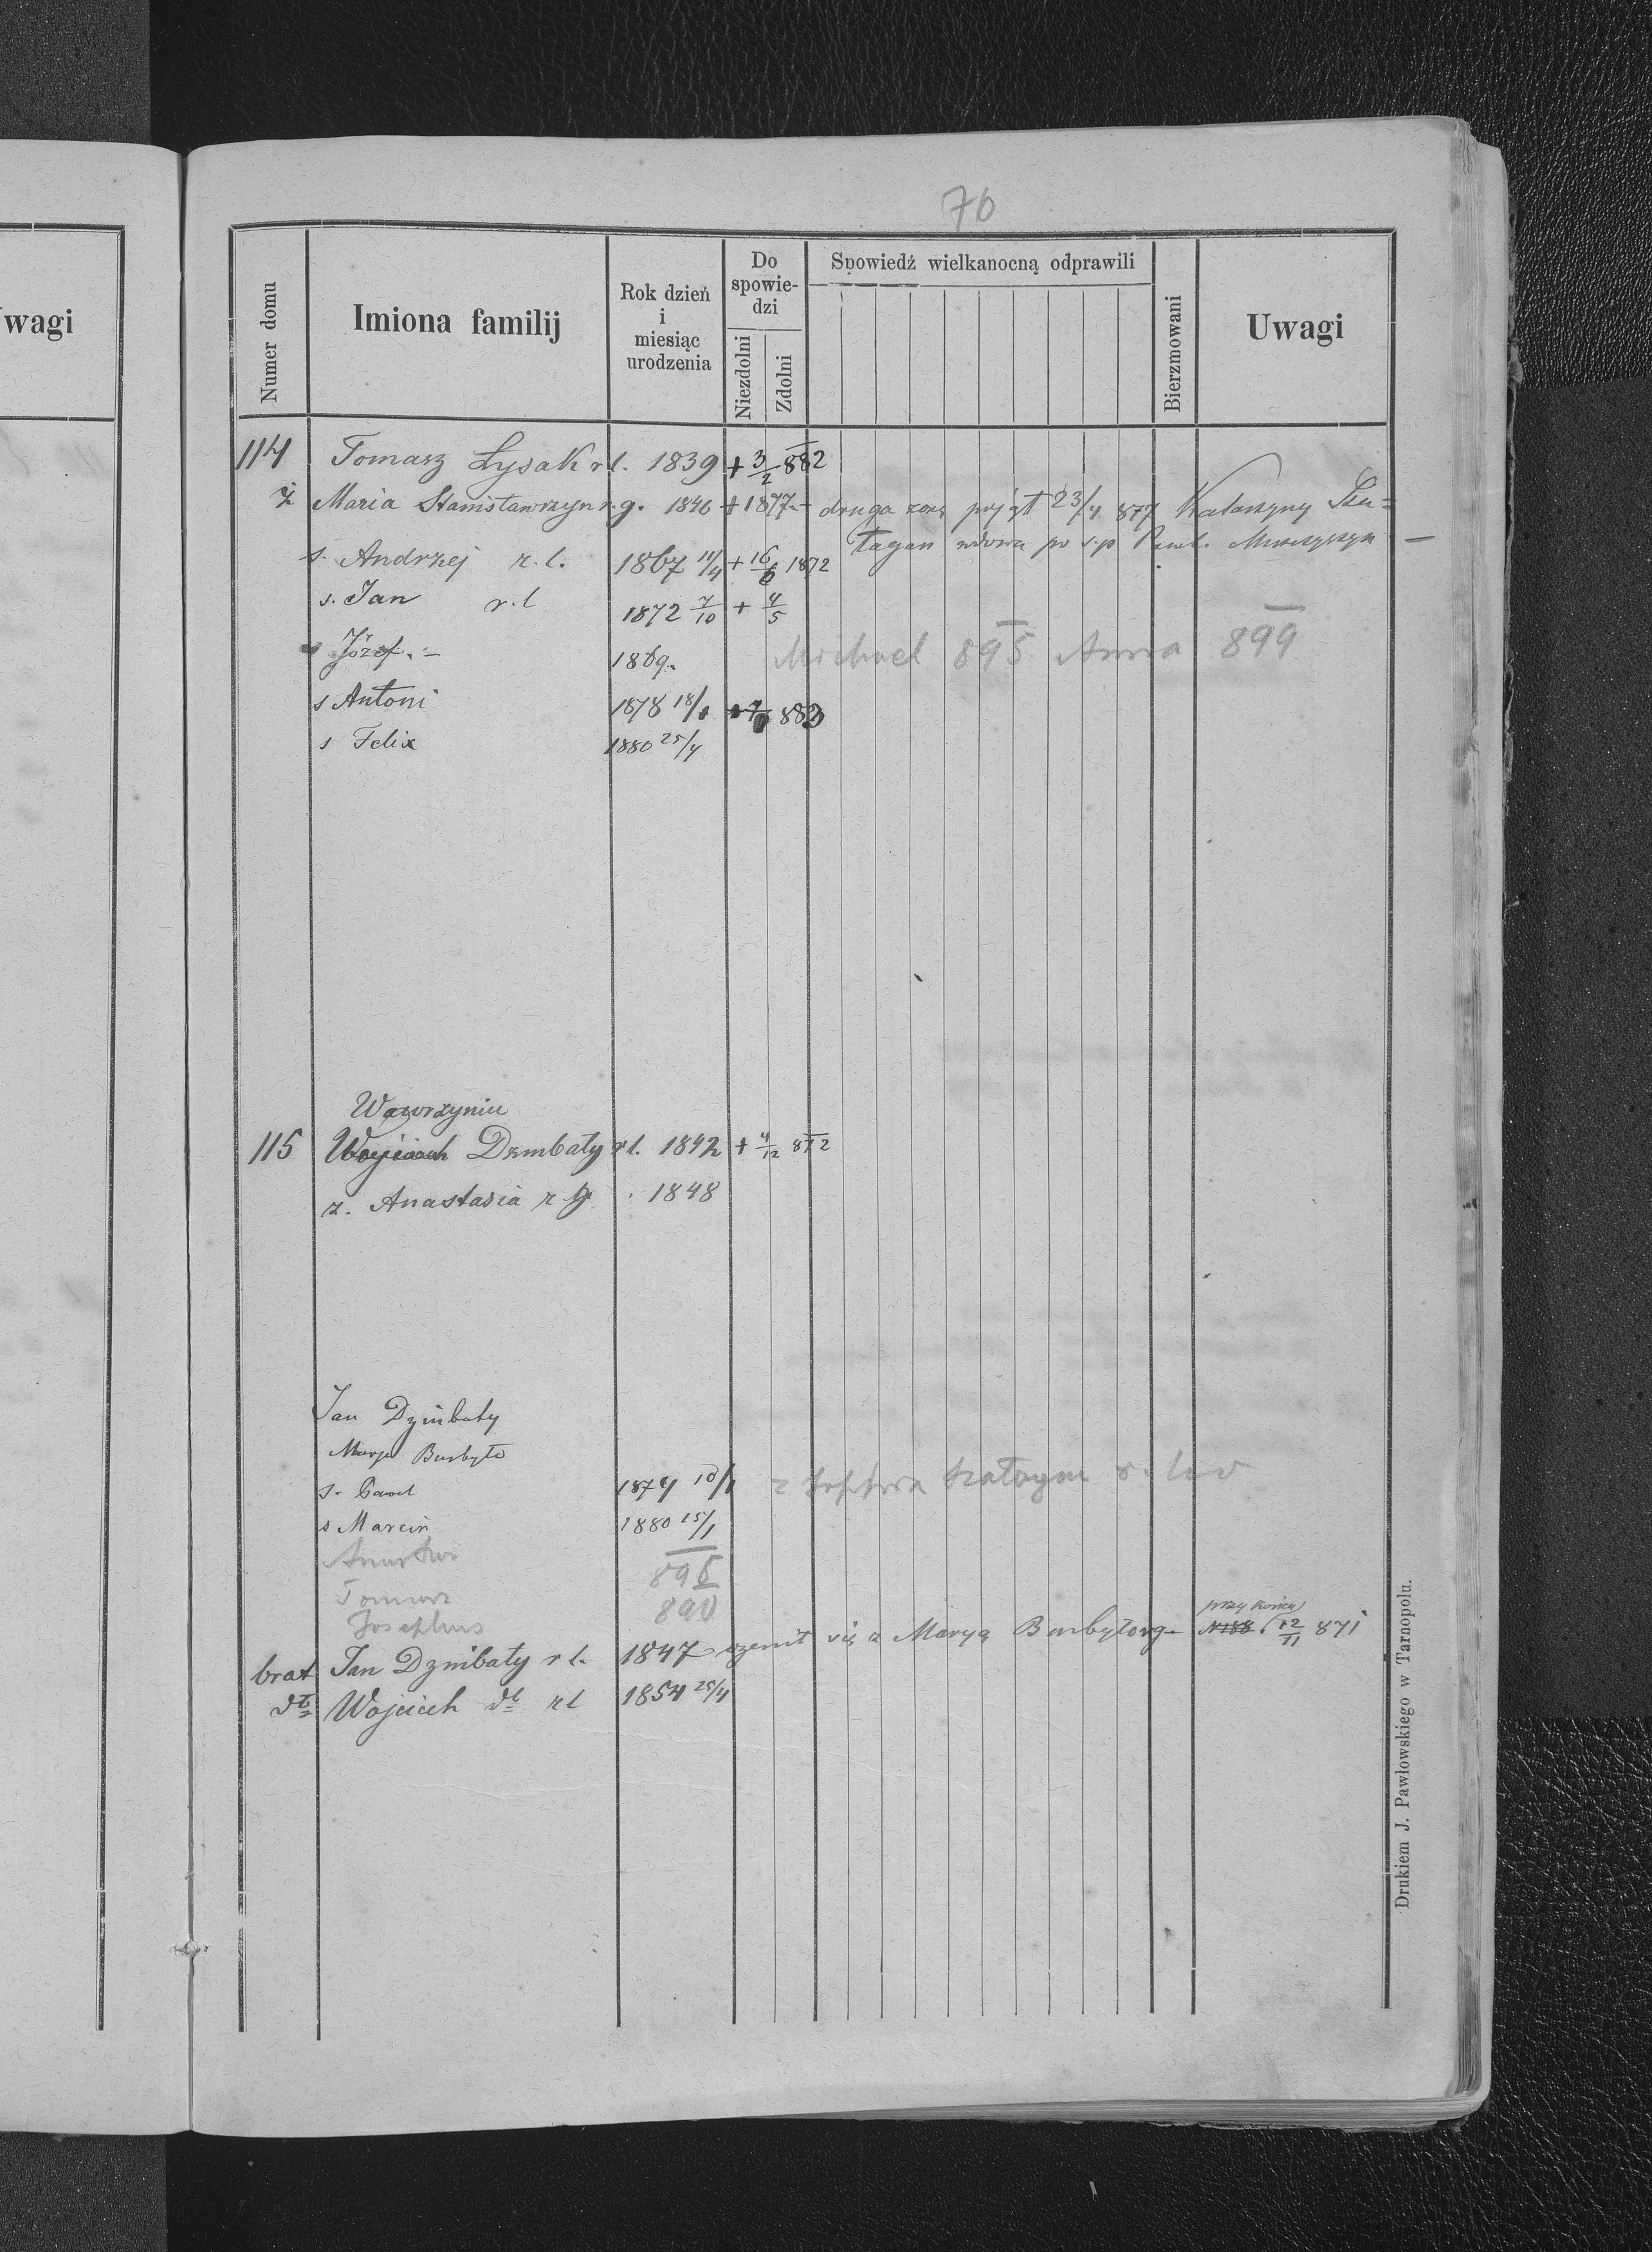 76
wagi
Numer domu
Imiona familij
Rok dzień
i
miesiąc
urodzenia
Do
spowie-
dzi
Niezdolni
Zdolni
Spowiedź wielkanocną odprawili
Bierzmowani
Uwagi
114 Tomasz Łysak rl. 1839 + 3/2 882
ż Maria Stanisławczyn r.g. 1846 + 1877 - druga żonę pojął 23/4 877 Katarzynę
łagan wdowa po s.p Pawl.
s. Andrzej r.l. 1867 11/4 + 16/6 1872
s. Jan r.l 1872 7/10 + 4/5
s Józef. - 1869. Michael 895 Anna 899
s Antoni 1878 18/1 882
s Felix 1880 25/4
Wawrzyniec
115 Wojciech Dzmbaty rl. 1842 + 4/12 872
z. Anastasia r g. 1848
Jan Dzmbaty
Marya Burbyło
s. Paweł 1874 10/1 z
s Marcin 1880 15/1
895
Tomasz 890
Josephus
brat Jan Dzmbaty r l. 1847 ożenił się z Maryą Burbyło rg - przy końcu N 188 12/11 871
dto Wojciech dto rl 1854 25/4
Drukiem J. Pawłowskiego w Tarnopolu.